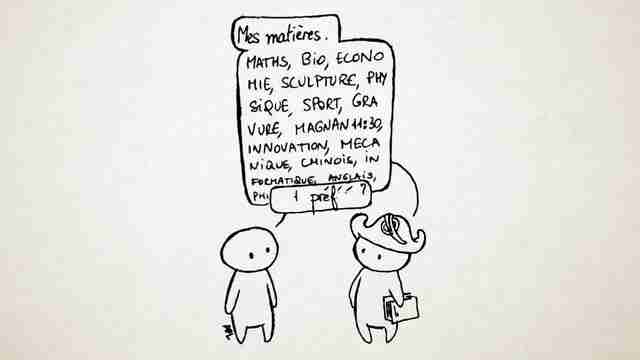 Mes matières.
MATHS, BIO, ECONO
MIE, SCULPTURE, PHY
SIQUE, SPORT, GRA
VURE, MAGNAN 11:30,
INNOVATION, MECA
NIQUE, CHINOIS, IN
FORMATIQUE, ANGLAIS,
PHI
1 préf'' ?